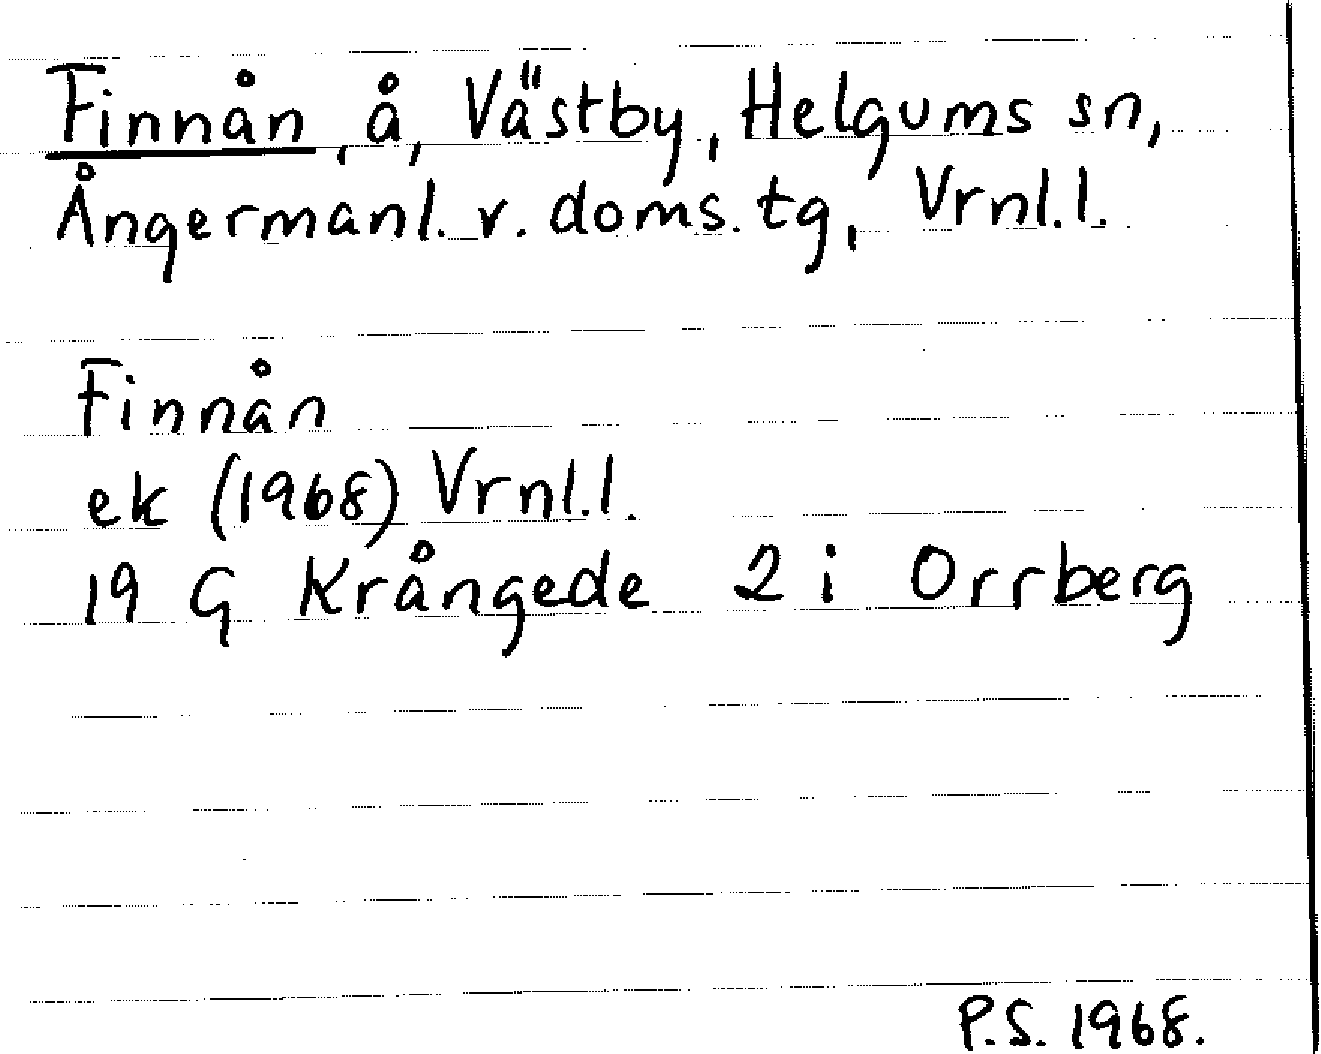 Finnån, å, Västby, Helgums sn,
Ångermanl. v. doms. tg, Vrnl.l.
Finnån
ek (1968) Vrnl.l.
19 G Krångede 2 i Orrberg
P.S. 1968.